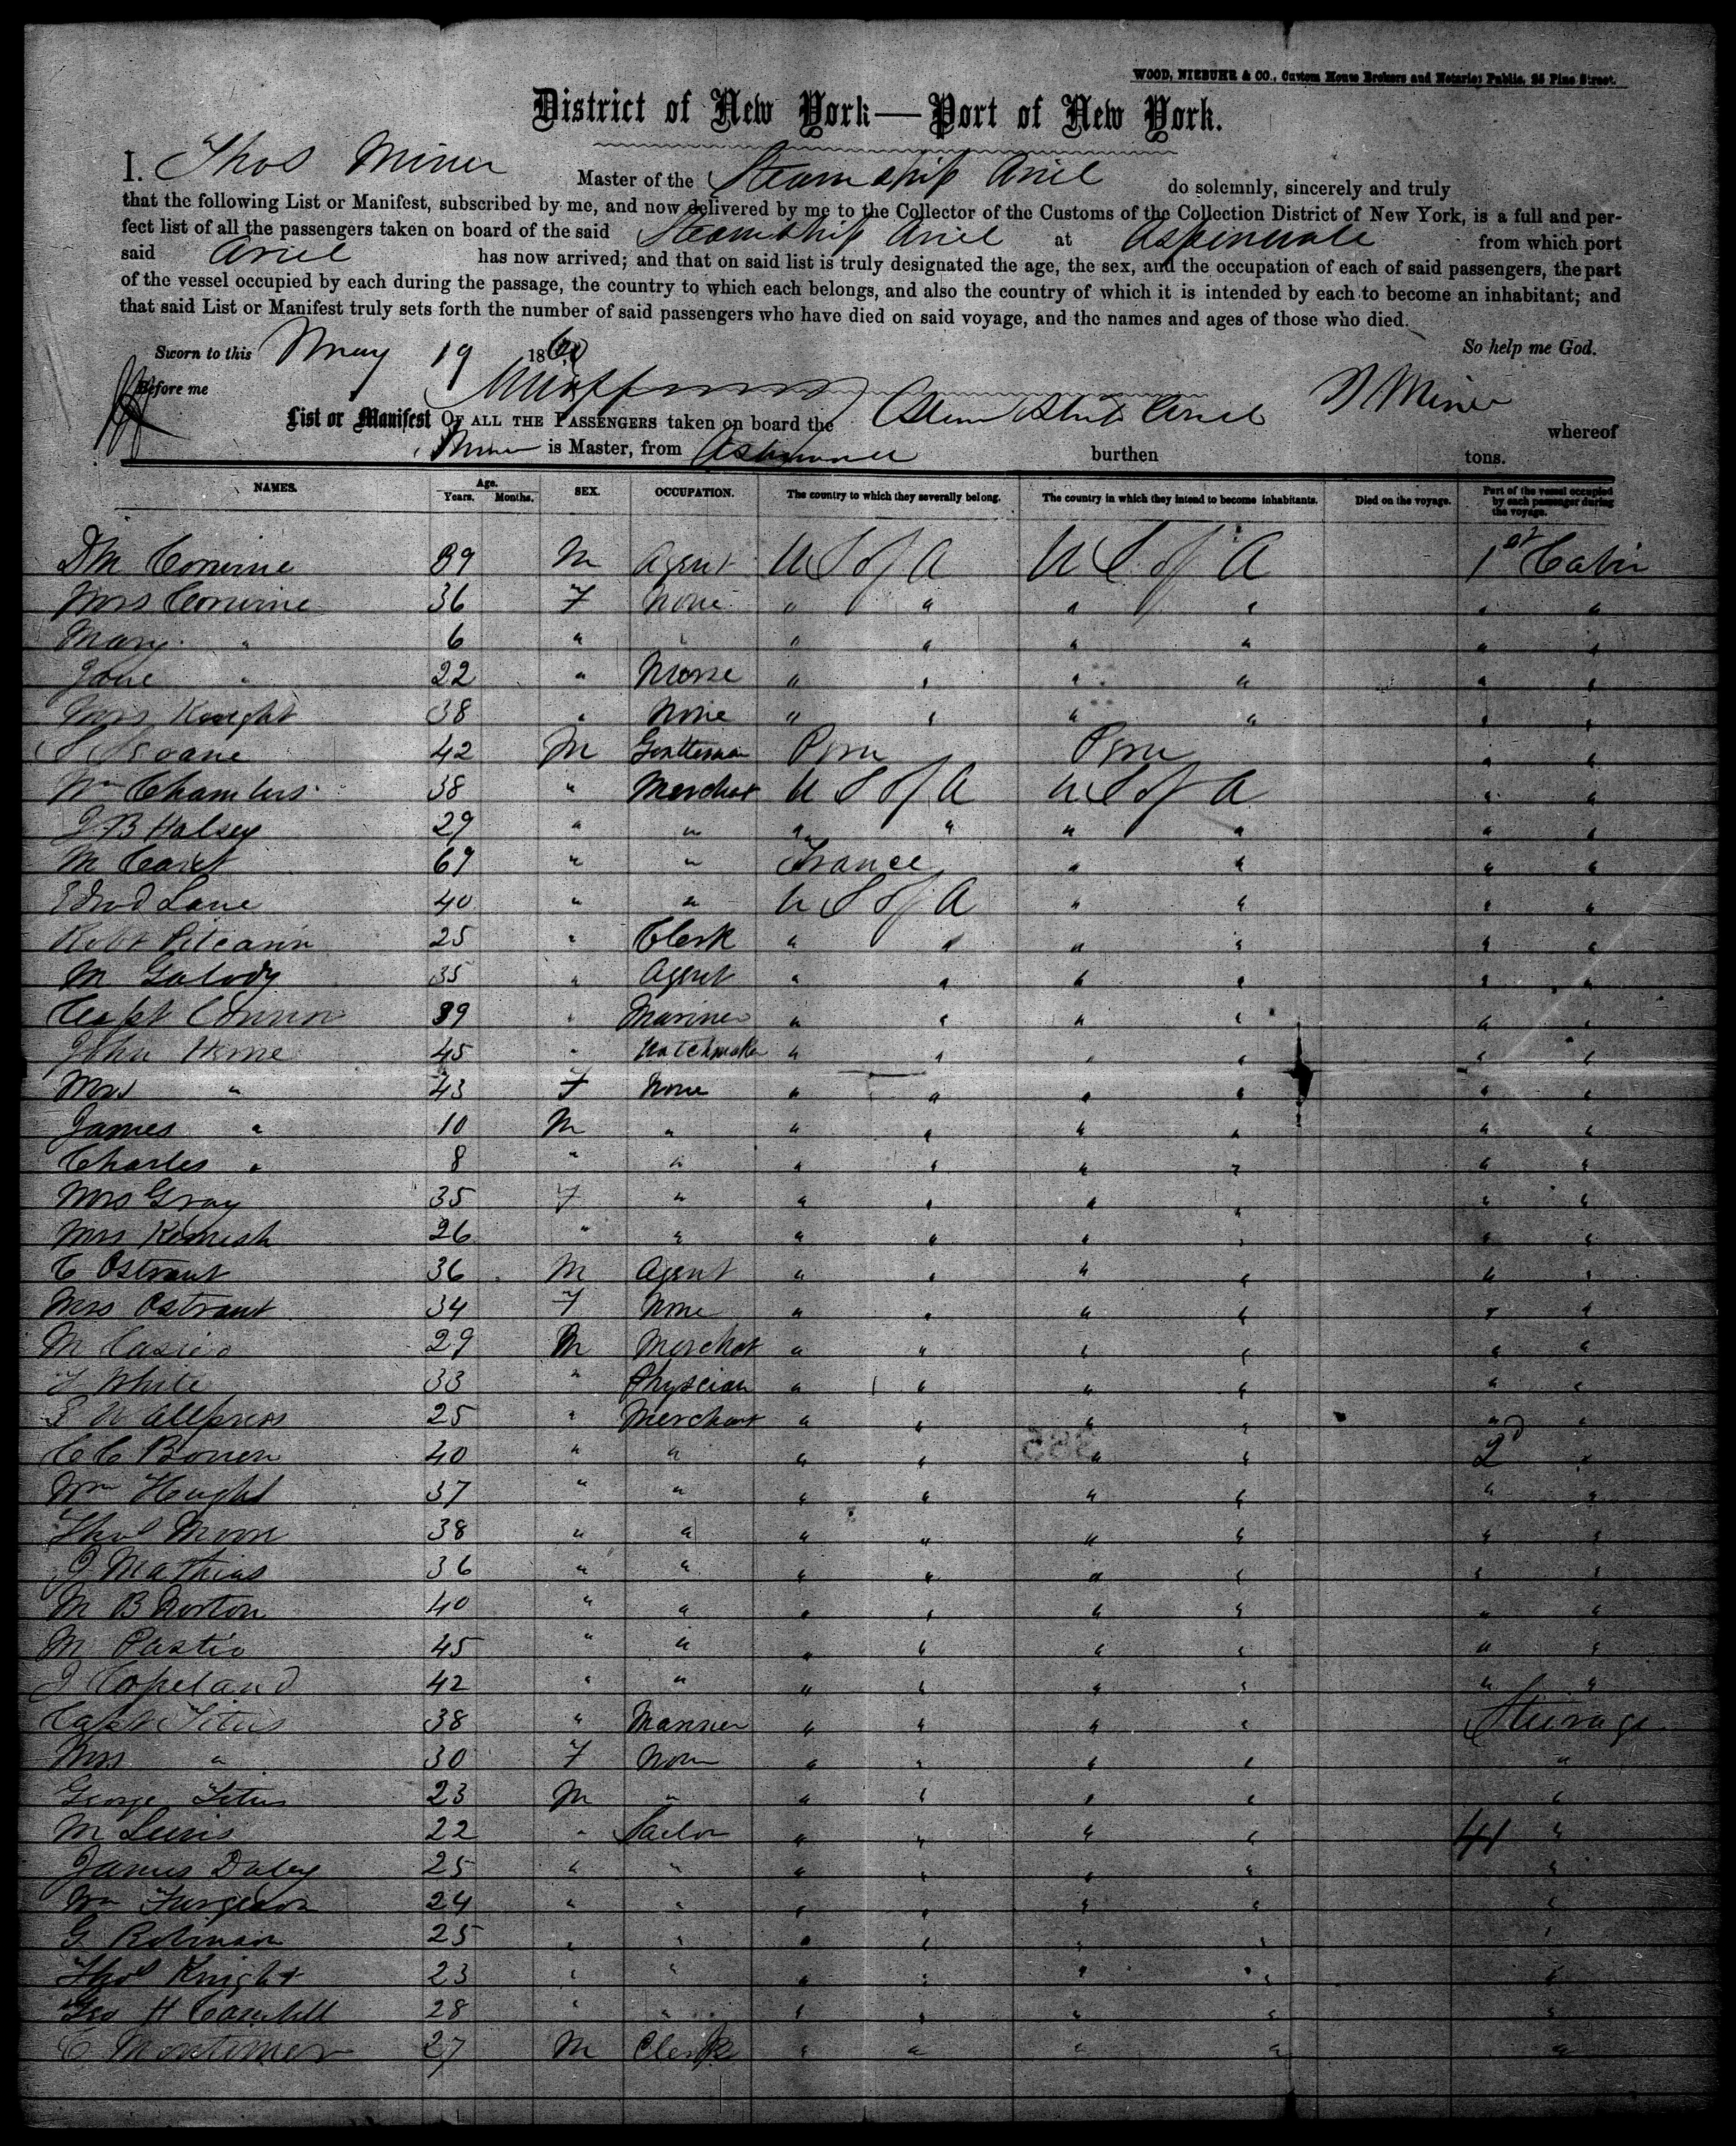 WOOD, NIEBUHR & CO., Custom House Brokers and Notaries Public, 25 Pine Street.
District of New York — Port of New York.
I. Thos Miner Master of the Steamship Ariel do solemnly, sincerely and truly
that the following List or Manifest, subscribed by me, and now delivered by me to the Collector of the Customs of the Collection District of New York, is a full and per-
fect list of all the passengers taken on board of the said Steamship Ariel at Aspinwall from which port
said Ariel has now arrived; and that on said list is truly designated the age, the sex, and the occupation of each of said passengers, the part
of the vessel occupied by each during the passage, the country to which each belongs, and also the country of which it is intended by each to become an inhabitant; and
that said List or Manifest truly sets forth the number of said passengers who have died on said voyage, and the names and ages of those who died.
Sworn to this May 19 1860 So help me God.
Before me T Miner
List or Manifest OF ALL THE PASSENGERS taken on board the Steam Ship Ariel whereof
Miner is Master, from Aspinwall burthen tons.
NAMES. Age. Years. Months. SEX. OCCUPATION. The country to which they severally belong. The country in which they intend to become inhabitants. Died on the voyage. Part of the vessel occupied by each passenger during the voyage.
D M Corwine 39 M Agent U S of A U S of A 1st Cabin
Mrs Corwine 36 F None " " " " " "
Mary " 6 " " " " " " " "
Jane " 22 " Nurse " " " " " "
Mrs Knight 38 " None " " " " " "
42 M Gentleman Peru Peru " "
Wm Chambers 38 " Merchat U S of A U S of A " "
J B Halsey 29 " " " " " " " "
M Caret 67 " " France " " " "
Edwd Lane 40 " " U S of A " " " "
Robt Pitcairn 25 " Clerk " " " " " "
M Galody 35 " Agent " " " " " "
Capt Connor 39 " Mariner " " " " " "
John Horne 45 " Watchmaker " " " " " "
Mrs " 43 F None " " " " " "
James " 10 M " " " " " " "
Charles " 8 " " " " " " " "
Mrs Gray 35 F " " " " " " "
Mrs Kimish 26 " " " " " " " "
C Ostrant 36 M Agent " " " " " "
Mrs Ostrant 34 F None " " " " " "
M 29 M Merchat " " " " " "
T White 33 " Physcian " " " " " "
25 " Merchant " " " " " "
C C Bowen 40 " " " " " " 2d "
Wm Hught 37 " " " " " " " "
Thos Moore 38 " " " " " " " "
J Mathias 36 " " " " " " " "
M B Norton 40 " " " " " " " "
M Castio 45 " " " " " " " "
J Copeland 42 " " " " " " " "
Capt Titus 38 " Mariner " " " " Steerage
Mrs " 30 F None " " " " "
George Titus 23 M " " " " " "
M Lewis 22 " Sailor " " " " 41 "
James Daley 25 " " " " " " "
Wm Furgeson 24 " " " " " " "
G Robinson 25 " " " " " " "
Thos Knight 23 " " " " " " "
Geo H Campbell 28 " " " " " " "
C Mortimer 27 M Clerk " " " " "